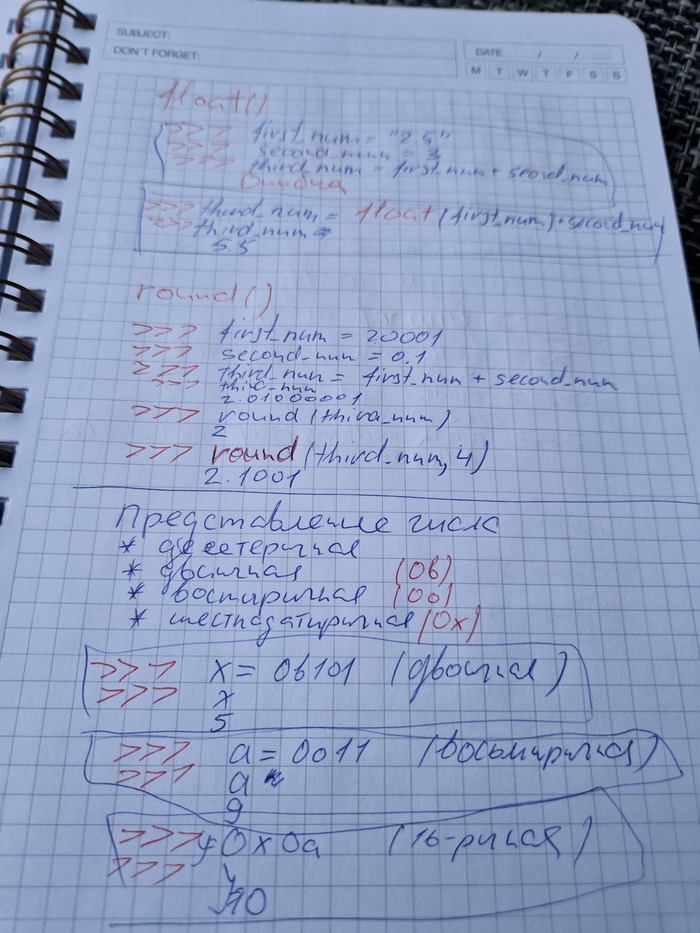 SUBJECT:
DON'T FORGET:
DATE / /
M T W T F S S
float()
>>> first_num = "2.5"
>>> second_num = 3
>>> third_num = first_num + second_num
Ошибка
>>> third_num = float(first_num)+second_num
>>> third_num
5.5
round()
>>> first_num = 2.0001
>>> second_num = 0.1
>>> third_num = first_num + second_num
>>> third_num
2.01000001
>>> round(third_num)
2
>>> round(third_num, 4)
2.1001
Представление числа
* десетеричная
* двоичная (0b)
* востиричная (0o)
* шестнадатиричная (0x)
>>> x = 0b101 (двоичная)
>>> x
5
>>> a = 0o11 (восьмиричная)
>>> a
9
>>> y 0x0a (16-ричная)
>>> y
10